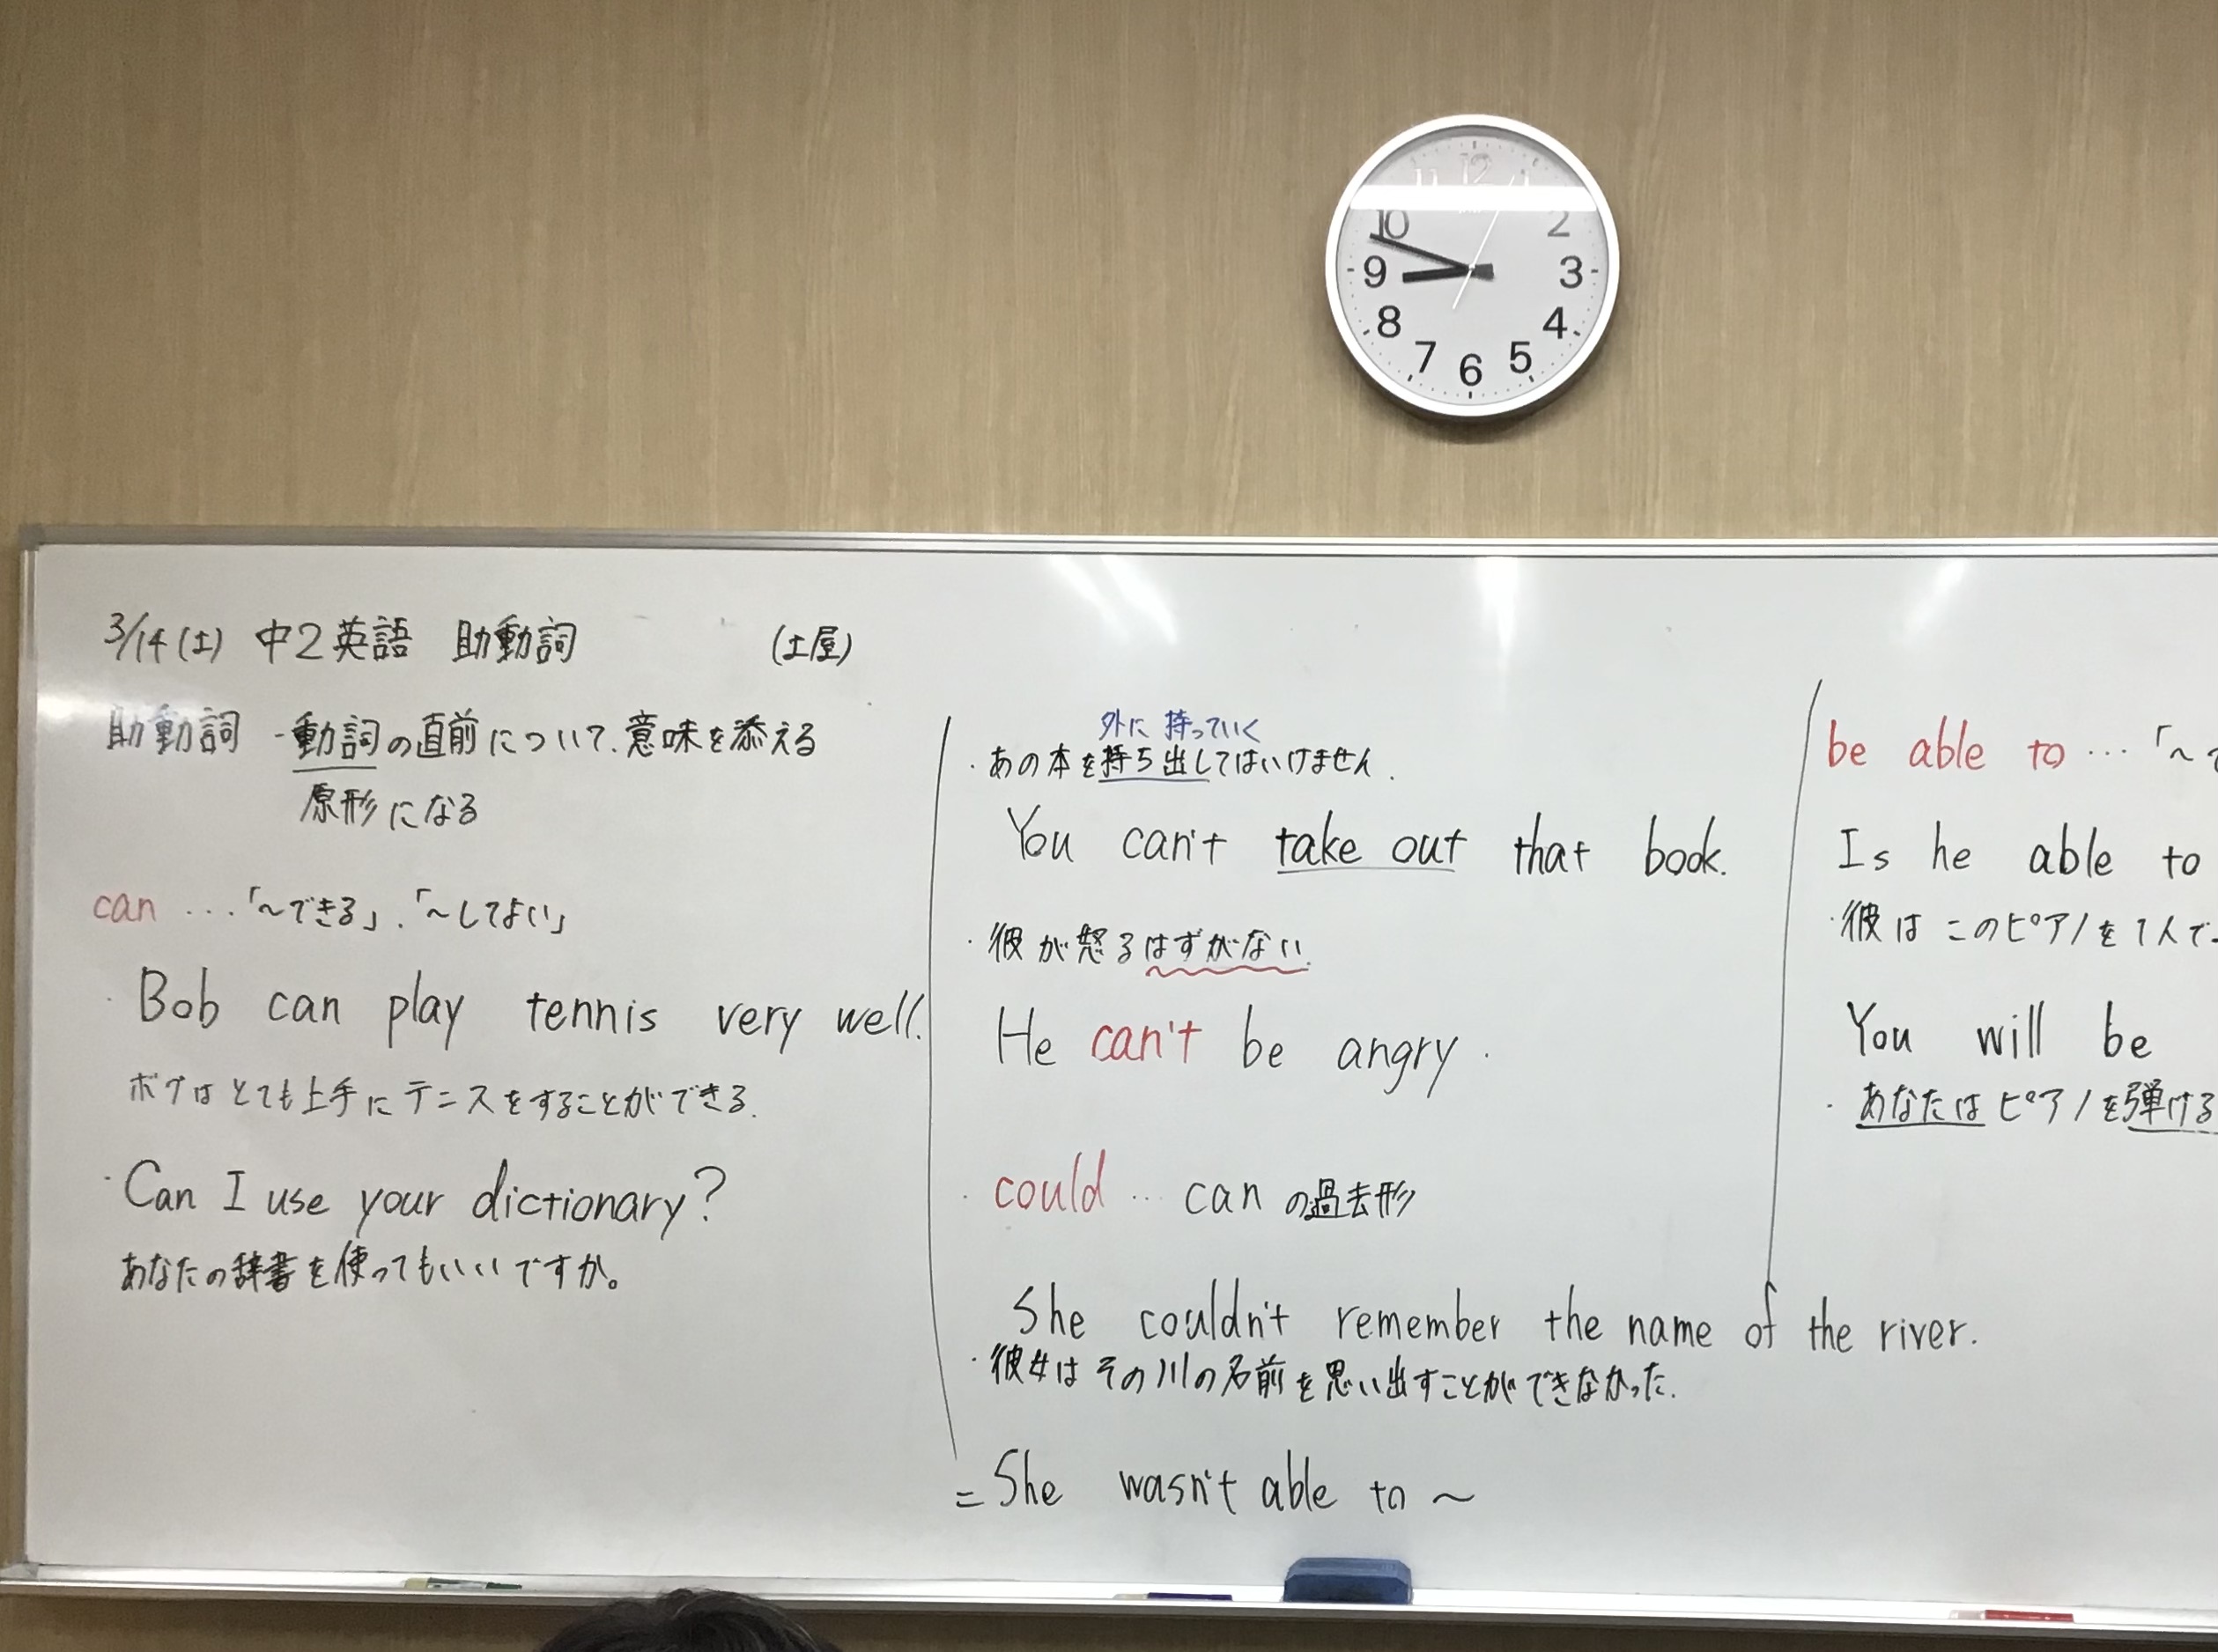 12
11
1
10
2
9
3
8
4
7
5
6
3/14(土) 中2英語 助動詞 (土屋)
助動詞 - 動詞の直前について、意味を添える
原形になる
can …「~できる」.「~してよい」
· Bob can play tennis very well.
ボブはとても上手にテニスをすることができる.
· Can I use your dictionary?
あなたの辞書を使ってもいいですか。
外に 持っていく
· あの本を持ち出してはいけません.
You can't take out that book.
· 彼が怒るはずがない.
He can't be angry.
· could … canの過去形
She couldn't remember the name of the river.
· 彼女はその川の名前を思い出すことができなかった.
= She wasn't able to ~
be able to …「~
Is he able to
· 彼はこのピアノを1人で
You will be
· あなたはピアノを弾ける